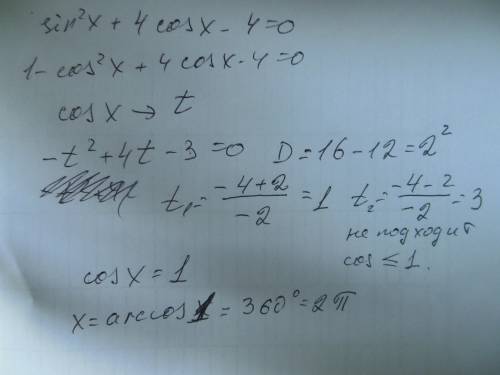 sin²x + 4 cosx - 4 = 0
1 - cos²x + 4 cosx - 4 = 0
cosx → t
-t² + 4t - 3 = 0 D = 16 - 12 = 2²
t₁ = (-4+2)/(-2) = 1 t₂ = (-4-2)/(-2) = 3
не подходит
cos ≤ 1.
cosx = 1
x = arccos 1 = 360° = 2π